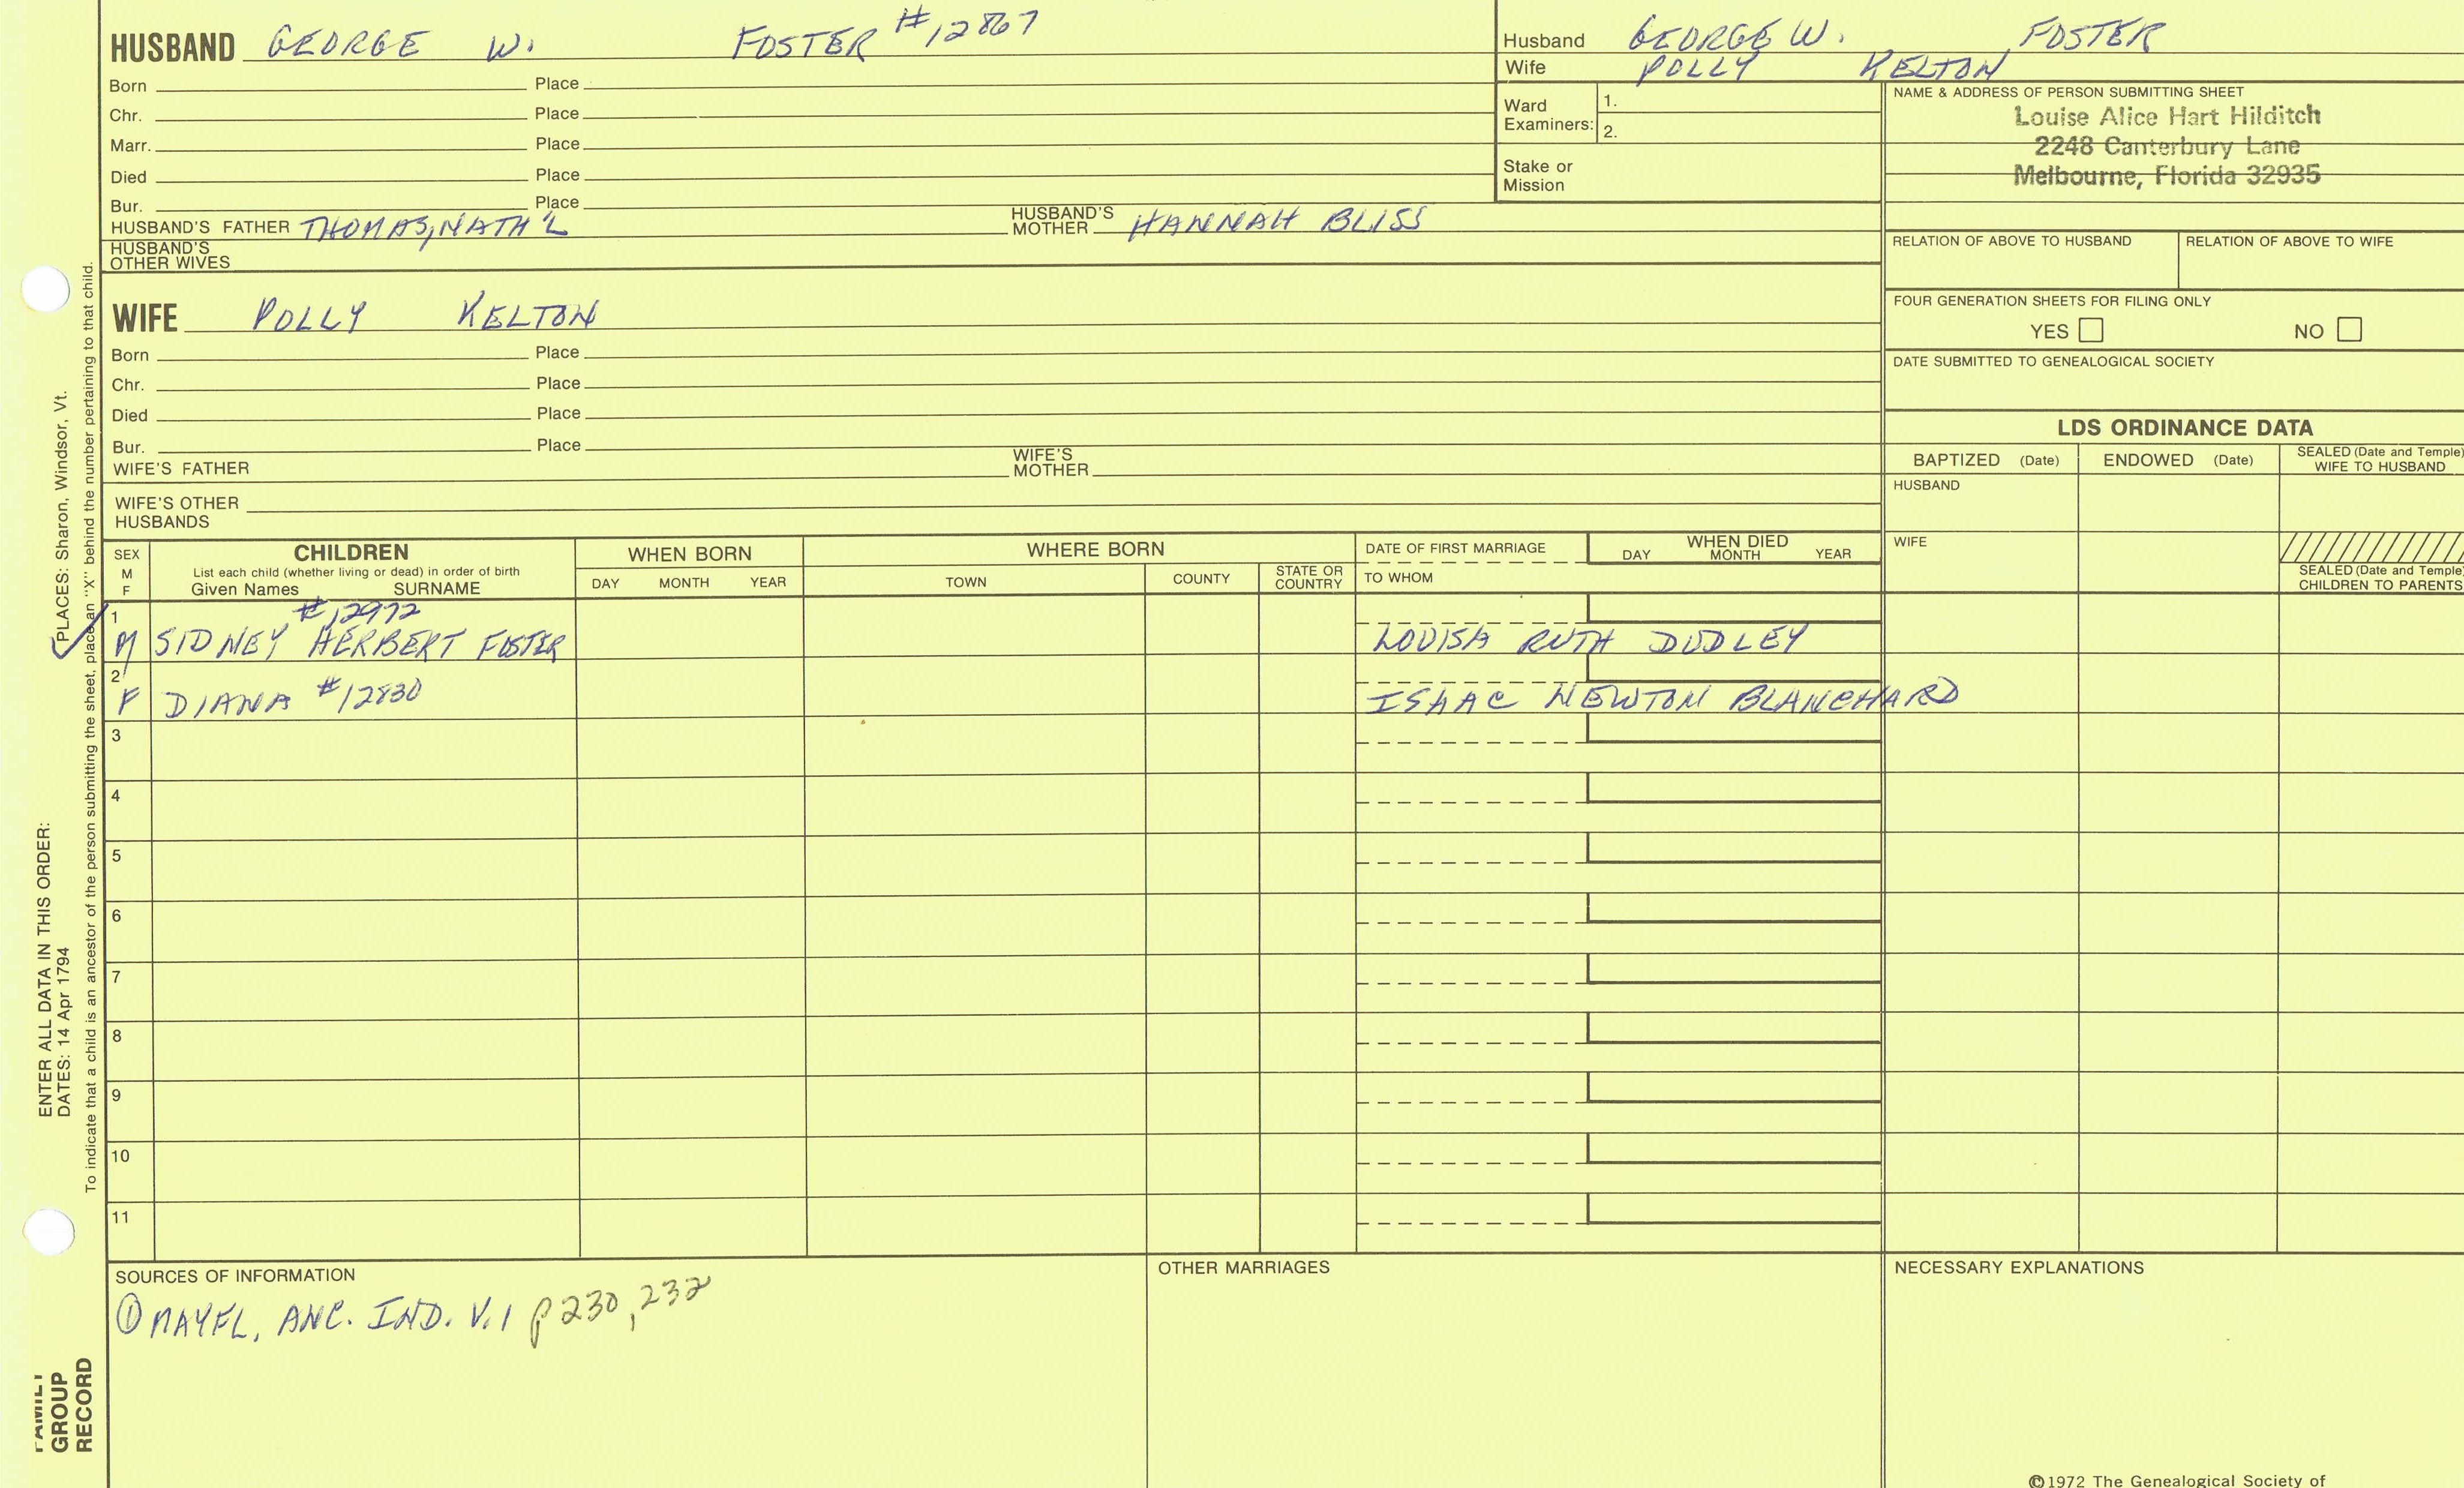 HUSBAND GEORGE W. FOSTER #12867
Born Place
Chr. Place
Marr. Place
Died Place
Bur. Place
HUSBAND'S FATHER THOMAS, NATH'L HUSBAND'S MOTHER HANNAH BLISS
HUSBAND'S OTHER WIVES
Husband GEORGE W. FOSTER
Wife POLLY KELTON
Ward Examiners: 1.
2.
Stake or Mission
NAME & ADDRESS OF PERSON SUBMITTING SHEET
Louise Alice Hart Hilditch
2248 Canterbury Lane
Melbourne, Florida 32935
RELATION OF ABOVE TO HUSBAND RELATION OF ABOVE TO WIFE
FOUR GENERATION SHEETS FOR FILING ONLY
YES NO
DATE SUBMITTED TO GENEALOGICAL SOCIETY
WIFE POLLY KELTON
Born Place
Chr. Place
Died Place
Bur. Place
WIFE'S FATHER WIFE'S MOTHER
WIFE'S OTHER HUSBANDS
LDS ORDINANCE DATA
BAPTIZED (Date) ENDOWED (Date) SEALED (Date and Temple) WIFE TO HUSBAND
HUSBAND
WIFE
SEALED (Date and Temple) CHILDREN TO PARENTS
SEX M F
CHILDREN
List each child (whether living or dead) in order of birth
Given Names SURNAME
WHEN BORN
DAY MONTH YEAR
WHERE BORN
TOWN COUNTY STATE OR COUNTRY
DATE OF FIRST MARRIAGE
TO WHOM
WHEN DIED
DAY MONTH YEAR
1 #12972
M SIDNEY HERBERT FOSTER LOUISA RUTH DUDLEY
2
F DIANA #12830 ISAAC NEWTON BLANCHARD
3
4
5
6
7
8
9
10
11
SOURCES OF INFORMATION
① MAYFL. ANC. IND. V.1 p 230, 232
OTHER MARRIAGES
NECESSARY EXPLANATIONS
©1972 The Genealogical Society of
ENTER ALL DATA IN THIS ORDER:
DATES: 14 Apr 1794 PLACES: Sharon, Windsor, Vt.
To indicate that a child is an ancestor of the person submitting the sheet, place an "X" behind the number pertaining to that child.
FAMILY
GROUP
RECORD